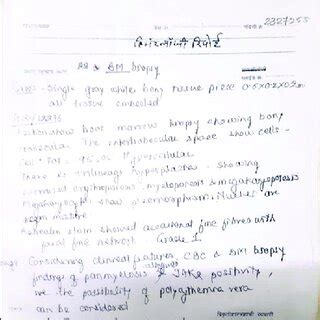 2327255
हिस्टोलॉजी रिपोर्ट
BM biopsy
Single gray white bony tissue piece 0.6x0.2x0.2cm
all tissue embedded
Section show bone marrow biopsy showing bony
trabeculae. The intertrabecular space show cells-
hypercellular
There is trilineage hyperplasia - showing
increased erythropoiesis, myelopoiesis & megakaryopoiesis
Megakaryocyte show pleomorphism. Nuclei are
seen mature
Reticulin stain showed occasional fine fibres with
focal fine network - Grade I
Considering clinical features, CBC & BM biopsy
findings of panmyelosis & JAK2 positivity,
the possibility of polycythemia vera
can be considered